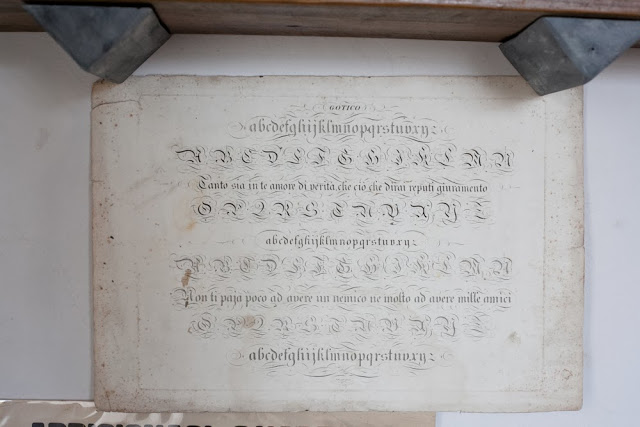 GOTICO
abcdefghijklmnopqrstuvxyz
A B C D E F G H I K L M N
Tanto sia in te amore di verità, che ciò che dirai reputi giuramento
O P Q R S T U V X Y Z
abcdefghijklmnopqrstuvxyz
A B C D E F G H I K L M N
Non ti paja poco ad avere un nemico ne molto ad avere mille amici
O P Q R S T U V X Y Z
abcdefghijklmnopqrstuvxyz